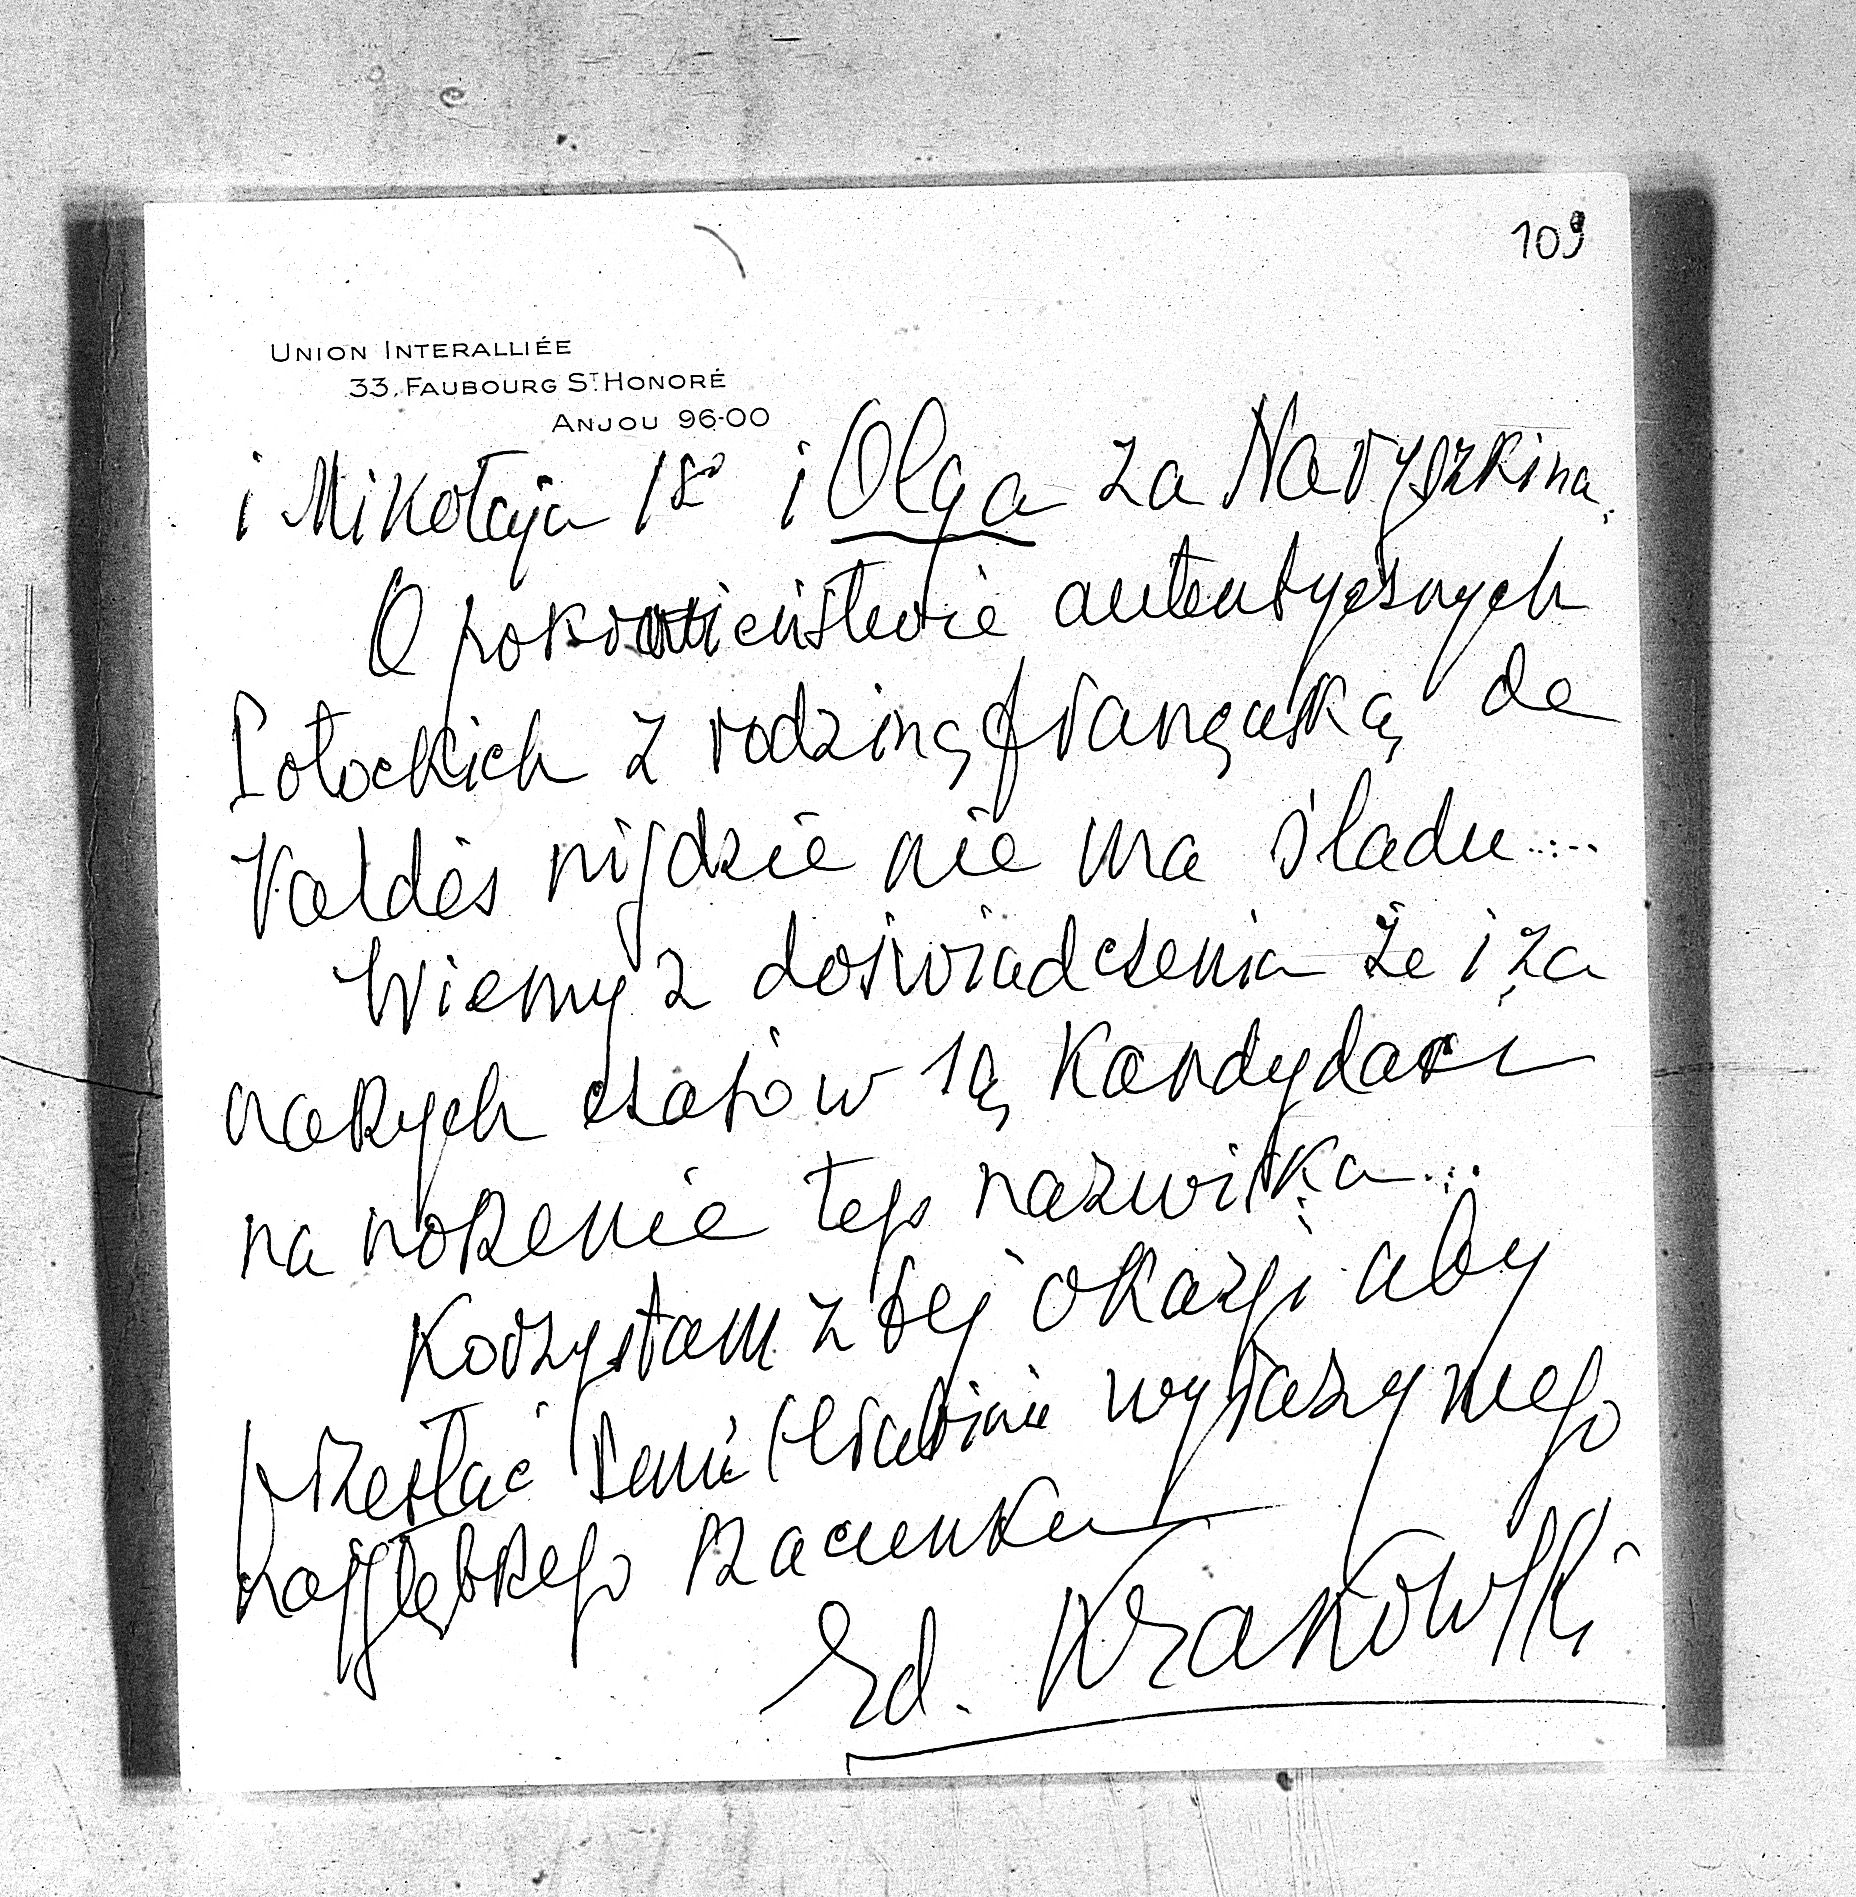 109
UNION INTERALLIÉE
33, FAUBOURG ST. HONORÉ
ANJOU 96-00
i Mikołaja Igo i Olga za Naryszkina.
O pokrewieństwie autentycznych
Potockich z rodziną francuską de
Valdès nigdzie nie ma śladu....
Wiemy z doświadczenia że i za
naszych czasów są kandydaci
na noszenie tego nazwiska....
Korzystam z tej okazji aby
przesłać Pani Hrabinie wyrazy mego
najgłębszego szacunku
Ed. Krakowski